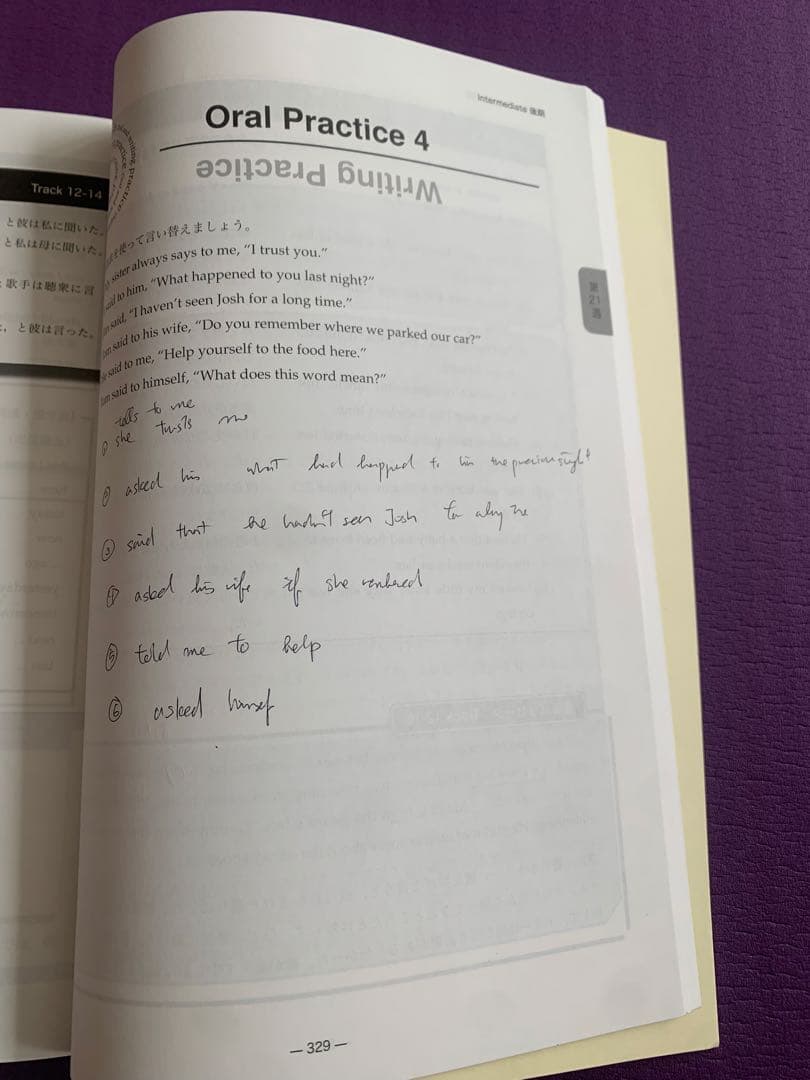 Intermediate 後期
Oral Practice 4
Writing Practice
Track 12-14
と彼は私に聞いた。
と私は母に聞いた。
歌手は聴衆に言
と彼は言った。
を使って言い替えましょう。
sister always says to me, “I trust you.”
said to him, “What happened to you last night?”
said, “I haven’t seen Josh for a long time.”
said to his wife, “Do you remember where we parked our car?”
said to me, “Help yourself to the food here.”
said to himself, “What does this word mean?”
第21週
tells to me
① she trusts me
② asked his what had happed to him the previous night
③ said that he hadn't seen Josh
④ asked his wife if she
⑤ told me to help
⑥ asked himself
— 329 —